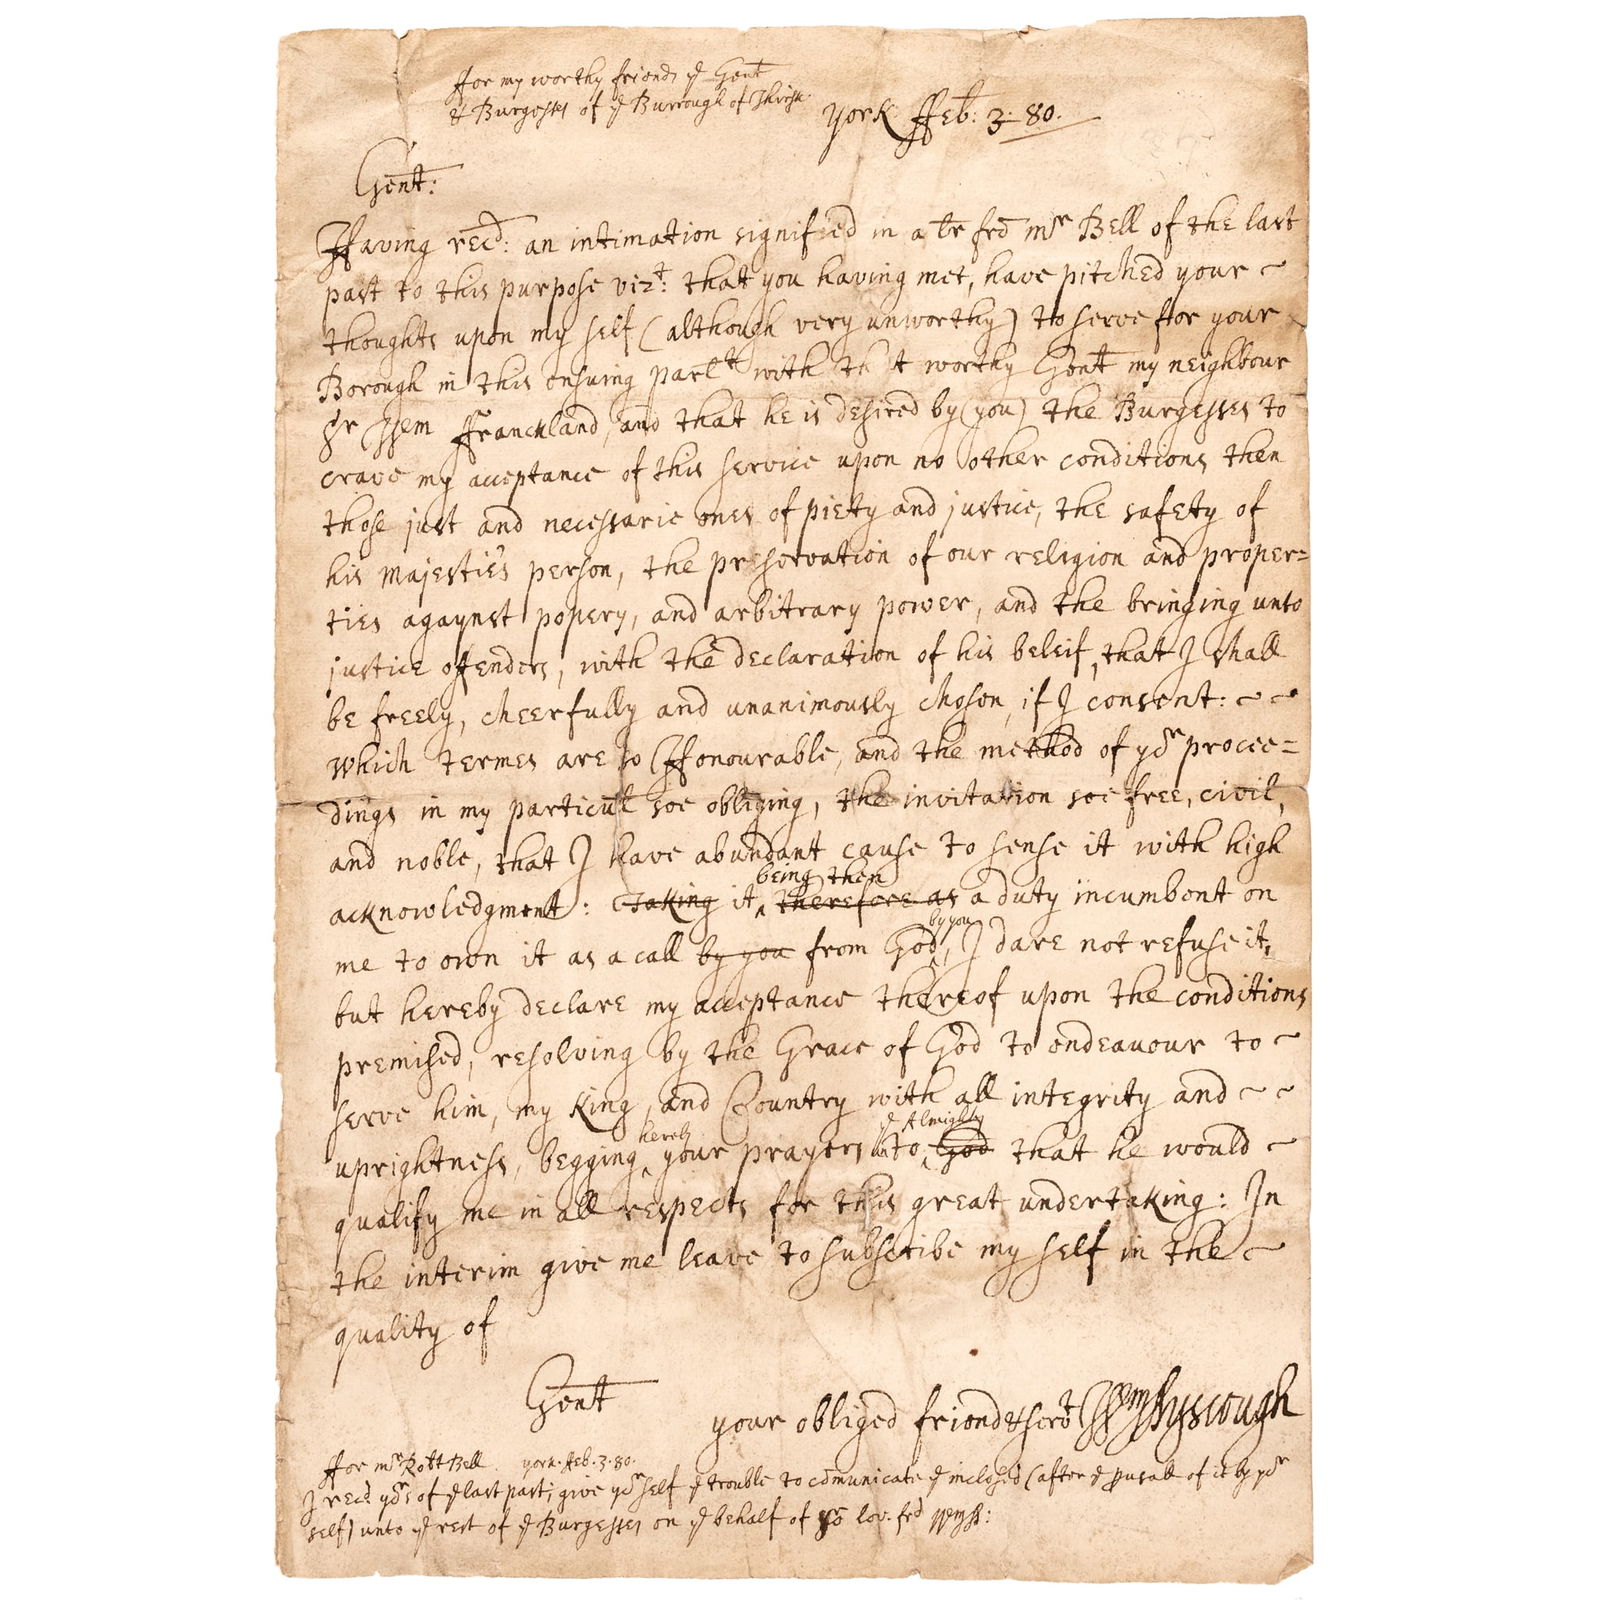 ffor my worthy friends ye Gent
& Burgesses of ye Burrough of Thirsk.
York ffeb: 3: 80.
Gent:
Having recd: an intimation signified in a lre frō mr Bell of the last
past to this purpose vizt: that you having met, have pitched your
thoughts upon my self (although very unworthy) to serve ffor your
Borough in this ensuing parlt with tht worthy Gent my neighbour
Sr Wem ffranckland, and that he is desired by (you) the Burgesses to
crave my acceptance of this service upon no other conditions then
those just and necessarie ones of piety and justice, the safety of
his majesties person, the preservation of our religion and proper=
ties agaynst popery, and arbitrary power, and the bringing unto
justice offenders, with the declaration of his beleif, that I shall
be freely, cheerfully and unanimously chosen, if I consent:
which termes are so Honourable, and the method of yor procee=
dings in my particul soe obliging, the invitation soe free, civil,
and noble, that I have abundant cause to sense it with high
being then
acknowledgment: Taking it ‸ therefore as a duty incumbent on
by you
me to own it as a call by you from God‸, I dare not refuse it,
but hereby declare my acceptance thereof upon the conditions
premised, resolving by the Grace of God to endeavour to
serve him, my King, and Country with all integrity and
herely ye Almighty
uprightness, begging‸ your prayers unto‸ God that he would
qualify me in all respects for this great undertaking: In
the interim give me leave to subscribe my self in the
quality of
Gent
your obliged friend & servt Wm Ayscough
ffor mr Robt Bell. york. ffeb. 3. 80.
I recd yors of ye last past; give yor self ye trouble to cōmunicate ye inclosed (after ye perusall of it by yor
self) unto ye rest of ye Burgesses on ye behalf of yor lov. frd WmA: